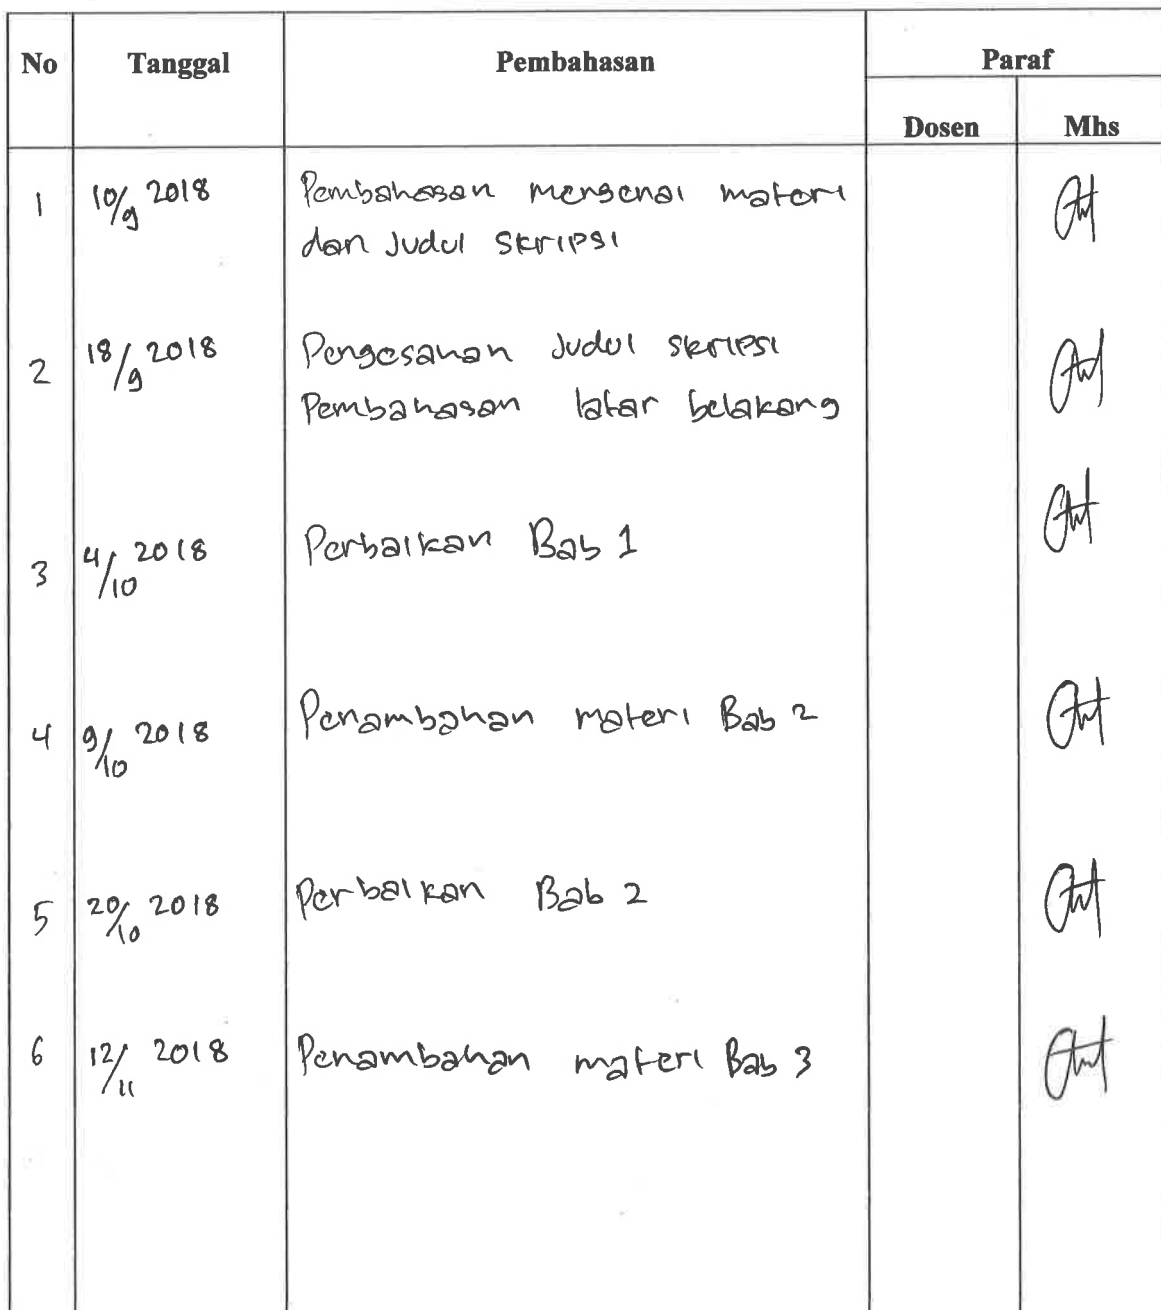 No Tanggal Pembahasan Paraf
Dosen Mhs
1 10/9 2018 Pembahasan mengenai materi
dan Judul skripsi
2 18/9 2018 Pengesahan Judul skripsi
Pembahasan latar belakang
3 4/10 2018 Perbaikan Bab 1
4 9/10 2018 Penambahan materi Bab 2
5 20/10 2018 Perbaikan Bab 2
6 12/11 2018 Penambahan materi Bab 3